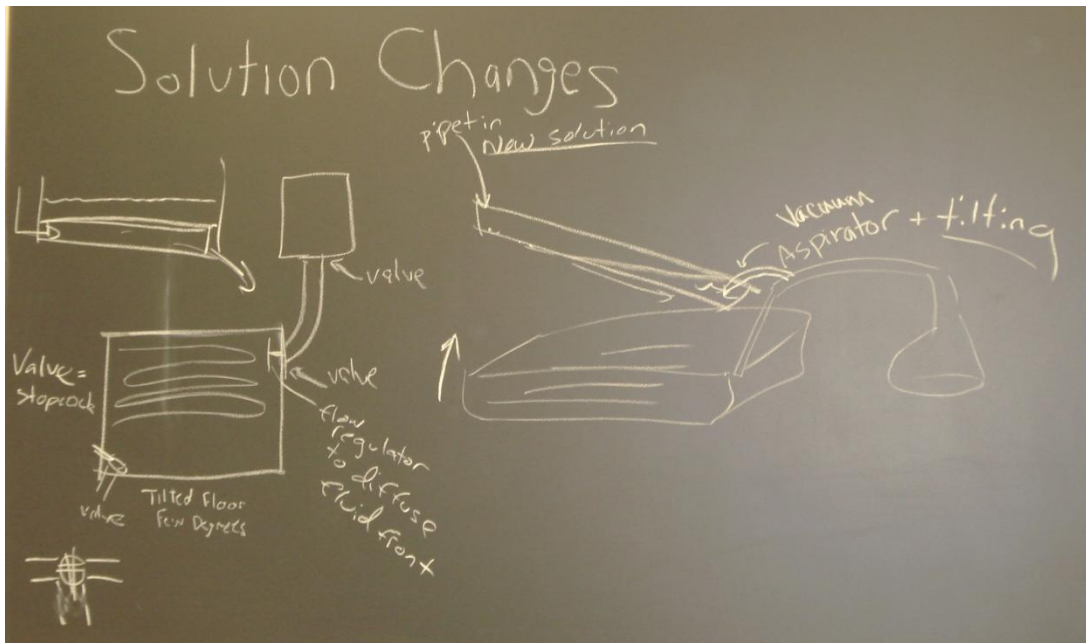 Solution Changes
pipet in
New solution
Vacuum
Aspirator + tilting
valve
Valve =
stopcock
valve
flow
regulator
to diffuse
fluid front
valve
Tilted Floor
Few Degrees